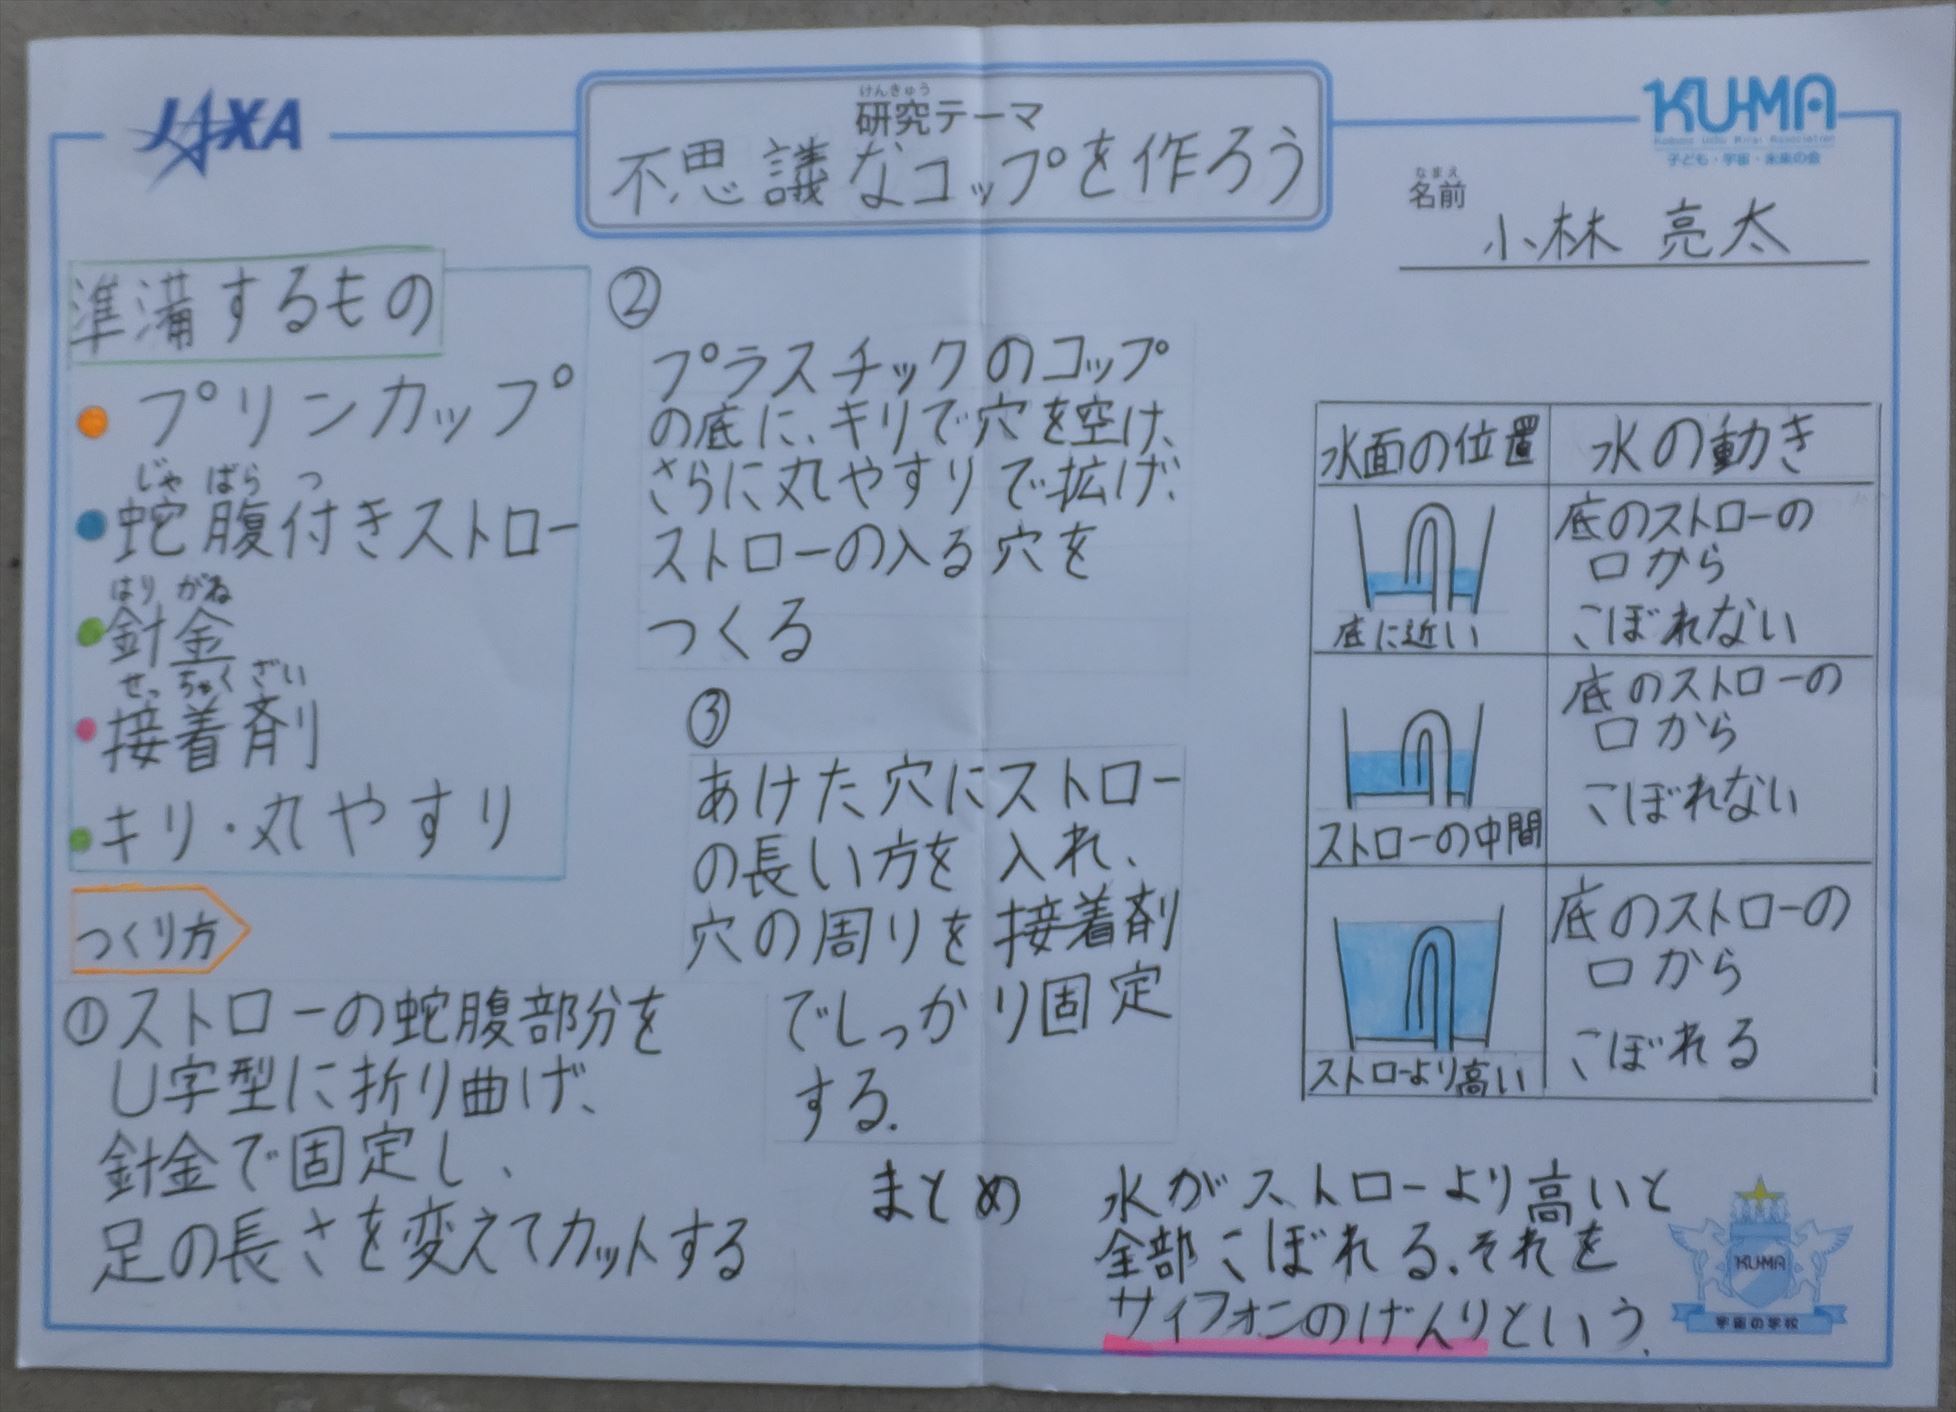 JAXA
けんきゅう
研究テーマ
不思議なコップを作ろう
KU-MA
Kodomo Uchu Mirai Association
子ども・宇宙・未来の会
なまえ
名前
小林 亮太
準備するもの
プリンカップ
じゃ ばら つ
蛇腹付きストロー
はり がね
針金
せっ ちゃく ざい
接着剤
キリ・丸やすり
つくり方
①ストローの蛇腹部分を
U字型に折り曲げ、
針金で固定し、
足の長さを変えてカットする
②
プラスチックのコップ
の底に、キリで穴を空け、
さらに丸やすりで拡げ、
ストローの入る穴を
つくる
③
あけた穴にストロー
の長い方を入れ、
穴の周りを接着剤
でしっかり固定
する.
水面の位置 水の動き
底に近い
底のストローの
口から
こぼれない
ストローの中間
底のストローの
口から
こぼれない
ストローより高い
底のストローの
口から
こぼれる
まとめ
水がストローより高いと
全部こぼれる.それを
サイフォンのげんりという.
KUMA
宇宙の学校